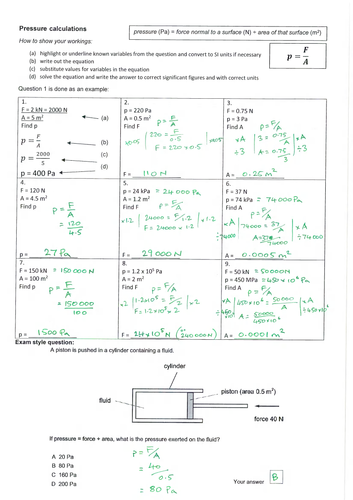 Pressure calculations
pressure (Pa) = force normal to a surface (N) ÷ area of that surface (m²)
How to show your workings:
(a) highlight or underline known variables from the question and convert to SI units if necessary
(b) write out the equation
(c) substitute values for variables in the equation
(d) solve the equation and write the answer to correct significant figures and with correct units
p = F/A
Question 1 is done as an example:
1.
F = 2 kN = 2000 N
A = 5 m²
(a)
Find p
p = F/A
(b)
p = 2000/5
(c)
(d)
p = 400 Pa
2.
p = 220 Pa
A = 0.5 m²
Find F
p = F/A
220 = F/0.5
F = 220 x 0.5
F = 110 N
3.
F = 0.75 N
p = 3 Pa
Find A
p = F/A
xA 3 = 0.75/A xA
÷3 A = 0.75/3 ÷3
A = 0.25 m²
4.
F = 120 N
A = 4.5 m²
Find p
p = F/A
= 120/4.5
p = 27 Pa
5.
p = 24 kPa = 24 000 Pa
A = 1.2 m²
Find F
p = F/A
x1.2 24000 = F/1.2 x1.2
F = 24000 x 1.2
F = 29000 N
6.
F = 37 N
p = 74 kPa = 74000 Pa
Find A
p = F/A
xA 74000 = 37/A xA
÷74000 A = 37/74000 ÷74000
A = 0.0005 m²
7.
F = 150 kN = 150 000 N
A = 100 m²
Find p
p = F/A
= 150 000/100
p = 1500 Pa
8.
p = 1.2 x 10⁵ Pa
A = 2 m²
Find F
p = F/A
x2 1.2x10⁵ = F/2 x2
F = 1.2x10⁵ x 2
F = 2.4 x 10⁵ N (240 000 N)
9.
F = 50 kN = 50000N
p = 450 MPa = 450 x 10⁶ Pa
Find A
p = F/A
xA 450 x10⁶ = 50000/A xA
÷450x10⁶ A = 50000/450x10⁶ ÷450x10⁶
A = 0.0001 m²
Exam style question:
A piston is pushed in a cylinder containing a fluid.
cylinder
fluid
piston (area 0.5 m²)
force 40 N
If pressure = force ÷ area, what is the pressure exerted on the fluid?
A 20 Pa
B 80 Pa
C 160 Pa
D 200 Pa
p = F/A
= 40/0.5
= 80 Pa
Your answer B